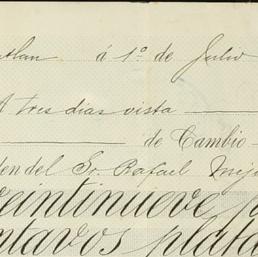 tlan á 1º de Julio
A tres dias vista
de Cambio
den del Sr. Rafael Mej
veintinueve p
ntavos plata